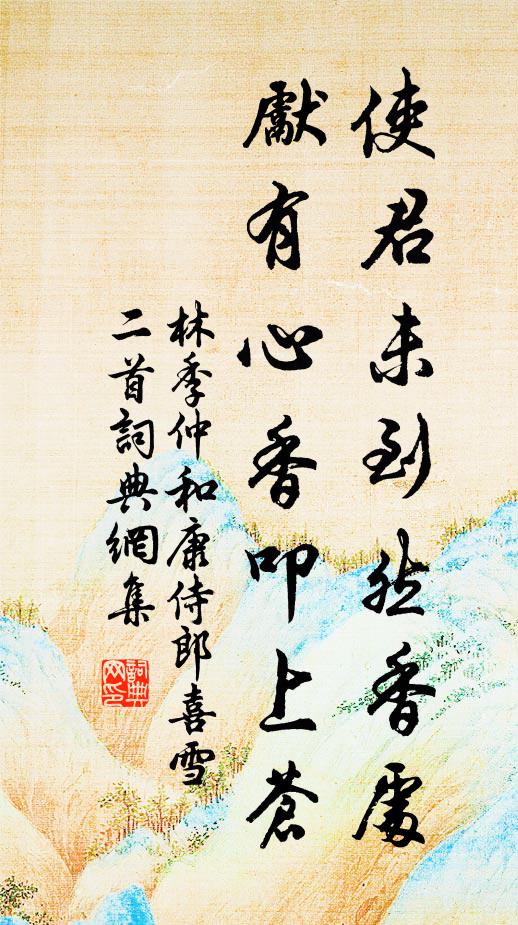 使君未到然香處
獻有心香叩上蒼
林季仲和康侍郎喜雪
二首詞典網集
詞典
网印